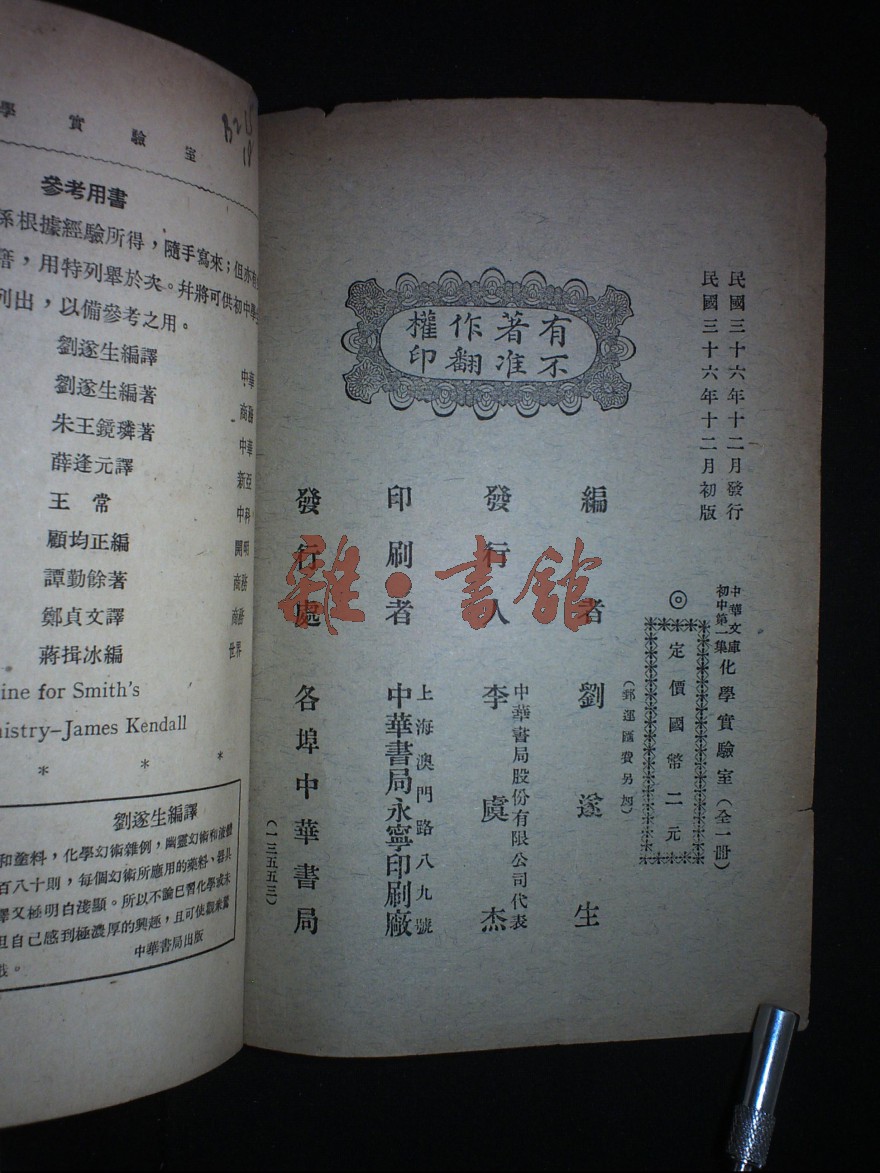 學實驗室
參考用書
係根據經驗所得，隨手寫來；但亦
，用特列舉於次。幷將可供初中學
列出，以備參考之用。
劉遂生編譯 中華
劉遂生編著 商務
朱王鏡璘著 中華
薛逢元譯 新亞
王常 中科
顧均正編 開明
譚勤餘著 商務
鄭貞文譯 商務
蔣揖冰編 世界
ine for Smith's
mistry–James Kendall
* * *
劉遂生編譯
和塗料，化學幻術雜例，幽靈幻術和液體
百八十則，每個幻術所應用的藥料、器具
譯又極明白淺顯。所以不論已習化學或未
但自己感到極濃厚的興趣，且可使觀衆驚
哉。
中華書局出版
民國三十六年十二月發行
民國三十六年十二月初版
中華文庫
初中第一集
化學實驗室（全一冊）
◎定價國幣二元
（郵運匯費另加）
有著作權
不准翻印
編者 劉遂生
發行人 李虞杰
中華書局股份有限公司代表
印刷者 中華書局永寧印刷廠
上海澳門路八九號
發行處 各埠中華書局
（一三五五三）
雜·書館